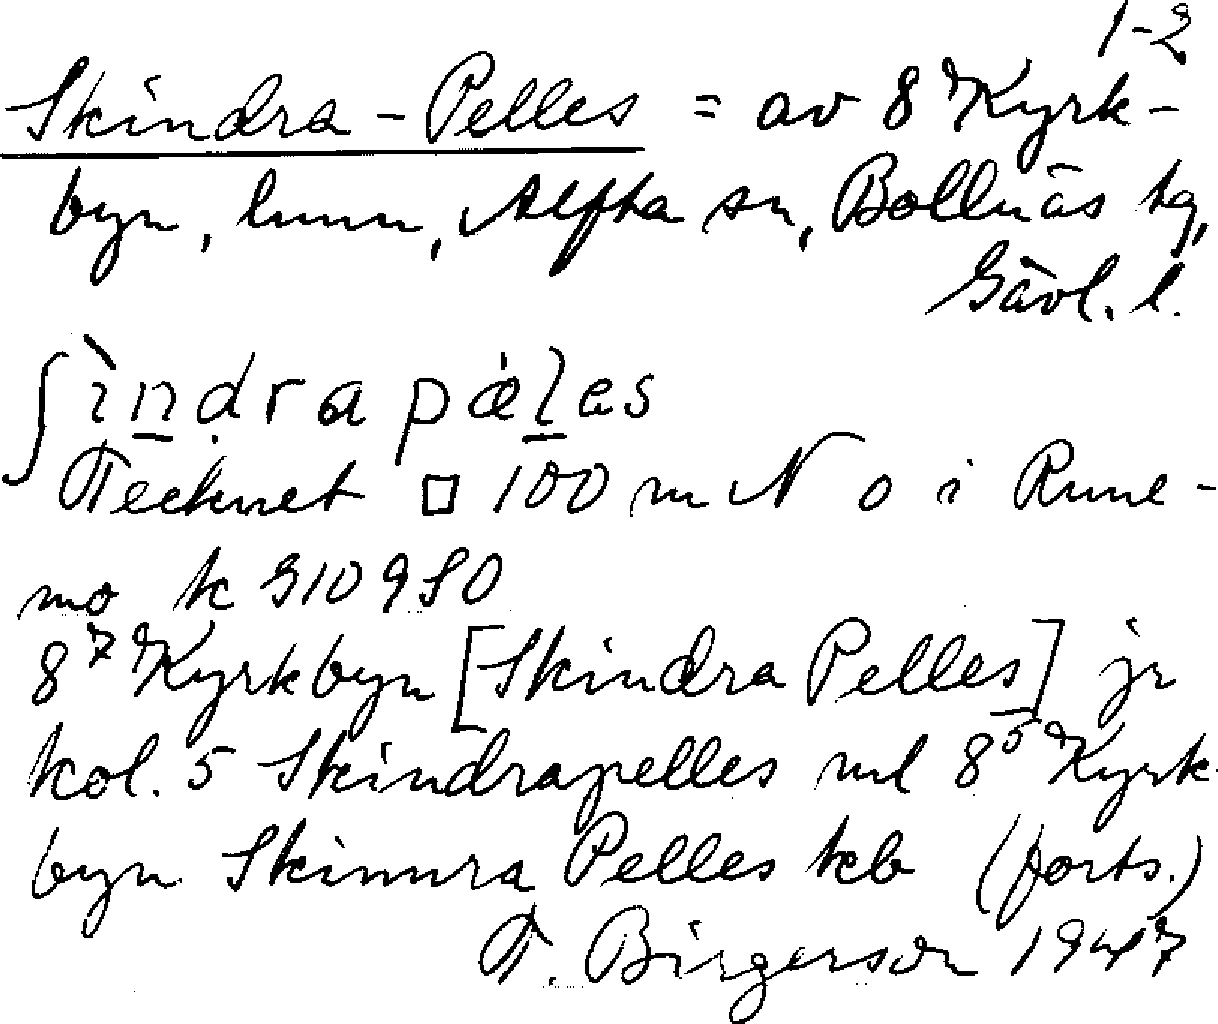 1-2
Skindra-Pelles = av 8⁷ Kyrk-
byn, hmn, Alfta sn, Bollnäs tg,
Gävl. l.
ʃìndra pæ̀les
Tecknet □ 100 m N o i Rune-
mo k G10 9 S0
8⁷ Kyrkbyn [Skindra Pelles] jr
kol. 5 Skindrapelles ml 8⁵ Kyrk
byn Skinnra Pelles kb (forts.)
T. Birgerson 1947